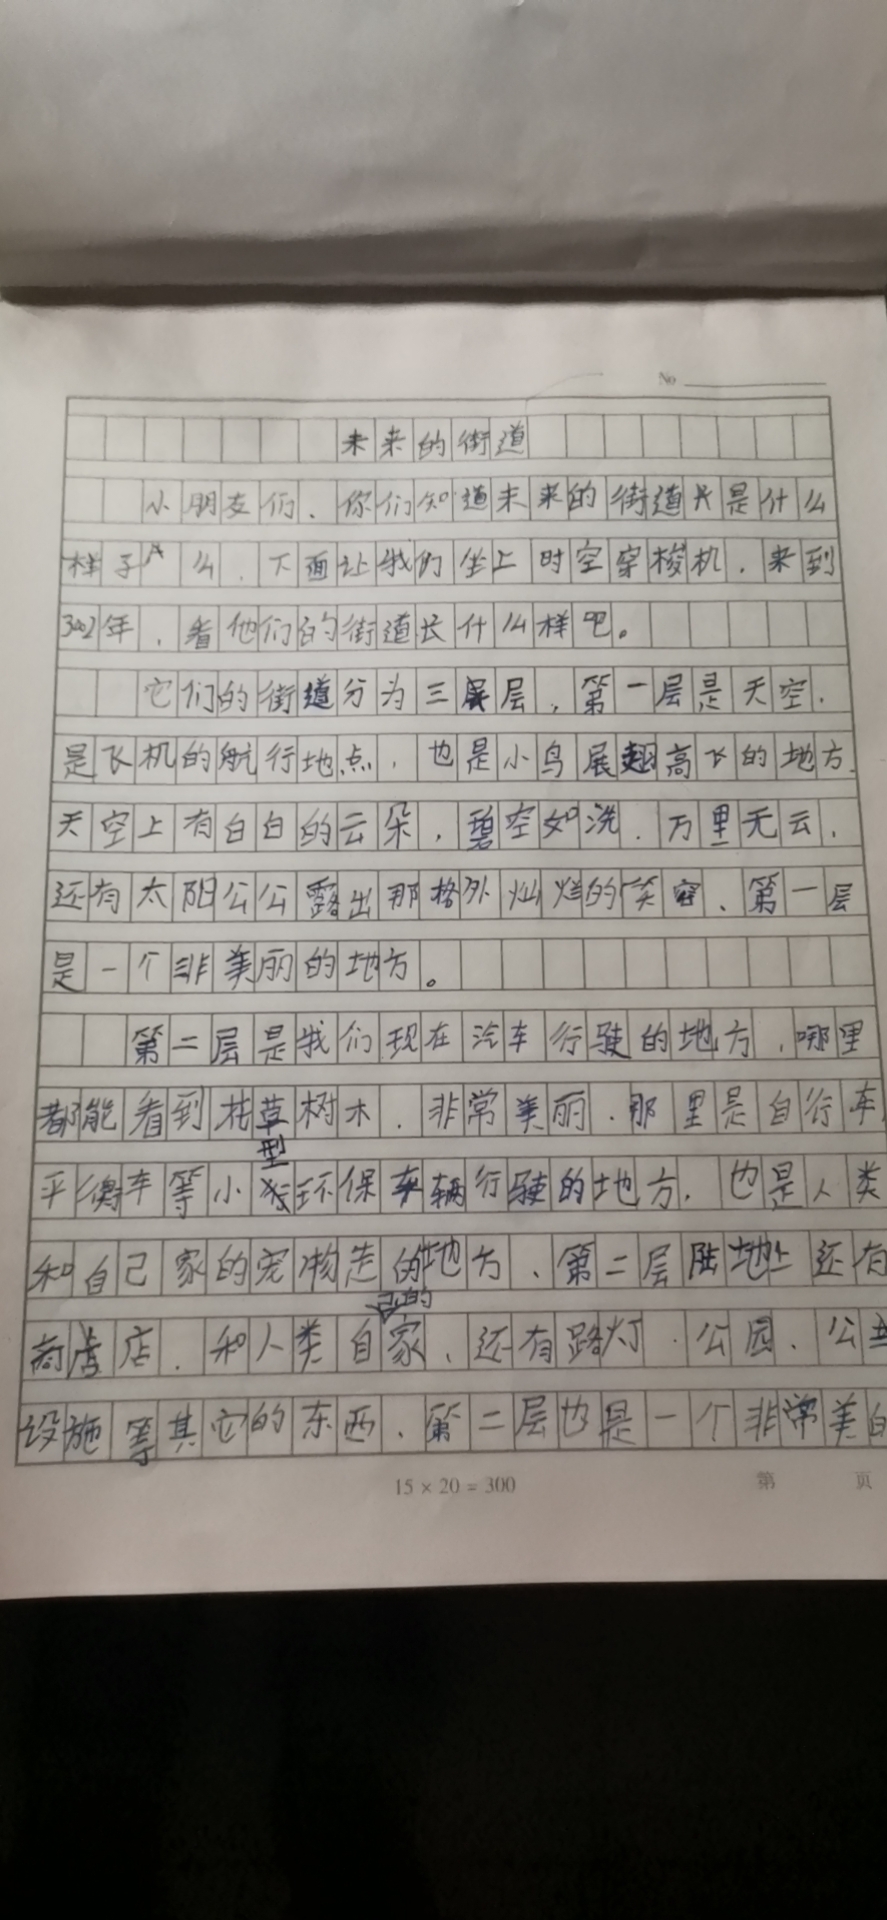 No
未来的街道
小朋友们、你们知道未来的街道长是什么
样子么、下面让我们坐上时空穿梭机、来到
3002年、看他们的街道长什么样吧。
它们的街道分为三层、第一层是天空、
是飞机的航行地点、也是小鸟展翅高飞的地方、
天空上有白白的云朵、碧空如洗、万里无云、
还有太阳公公露出那格外灿烂的笑容、第一层
是一个非美丽的地方。
第二层是我们现在汽车行驶的地方、哪里
都能看到花草树木、非常美丽、那里是自行车、
平衡车等小型环保车辆行驶的地方、也是人类
和自己家的宠物走的地方、第二层陆地上还有
商店、和人类自己的家、还有路灯、公园、公共
设施等其它的东西、第二层也是一个非常美的
15×20=300
第 页